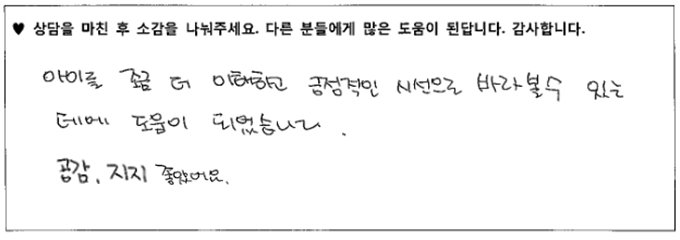 ♥ 상담을 마친 후 소감을 나눠주세요. 다른 분들에게 많은 도움이 된답니다. 감사합니다.
아이를 조금 더 이해하고 긍정적인 시선으로 바라볼수 있는
데에 도움이 되었습니다.
공감, 지지 좋았어요.